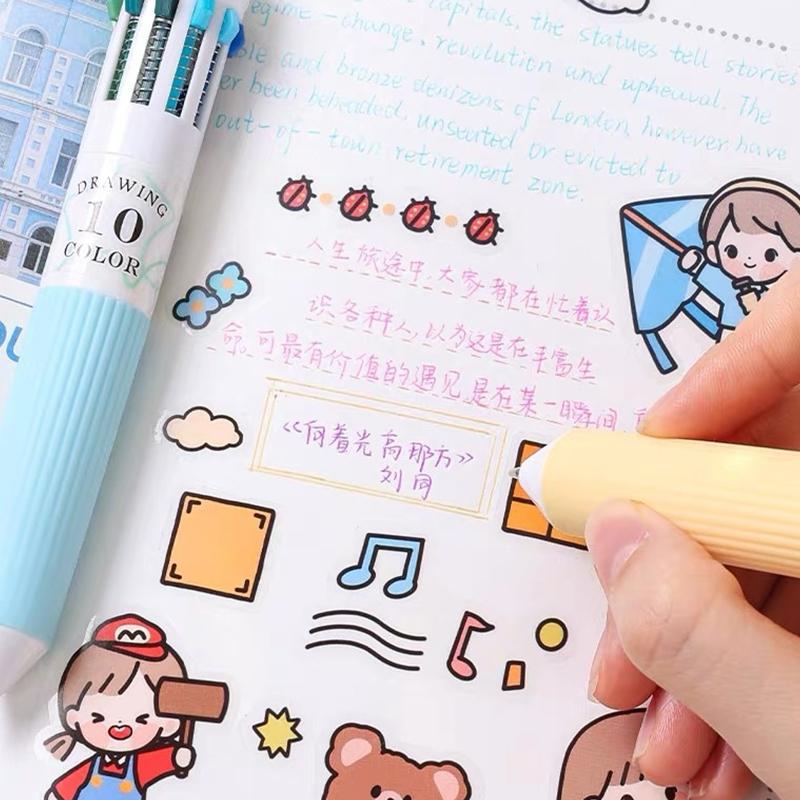 capitals, the statues tell stories
regime-change, revolution and upheaval. The
and bronze denizens of London, however have
been beheaded, unseated or evicted to
out-of-town retirement zone.
DRAWING
10
COLOR
人生旅途中,大家都在忙着认
识各种人,以为这是在丰富生
命。可最有价值的遇见是在某一瞬间,
《向着光亮那方》
刘同
M